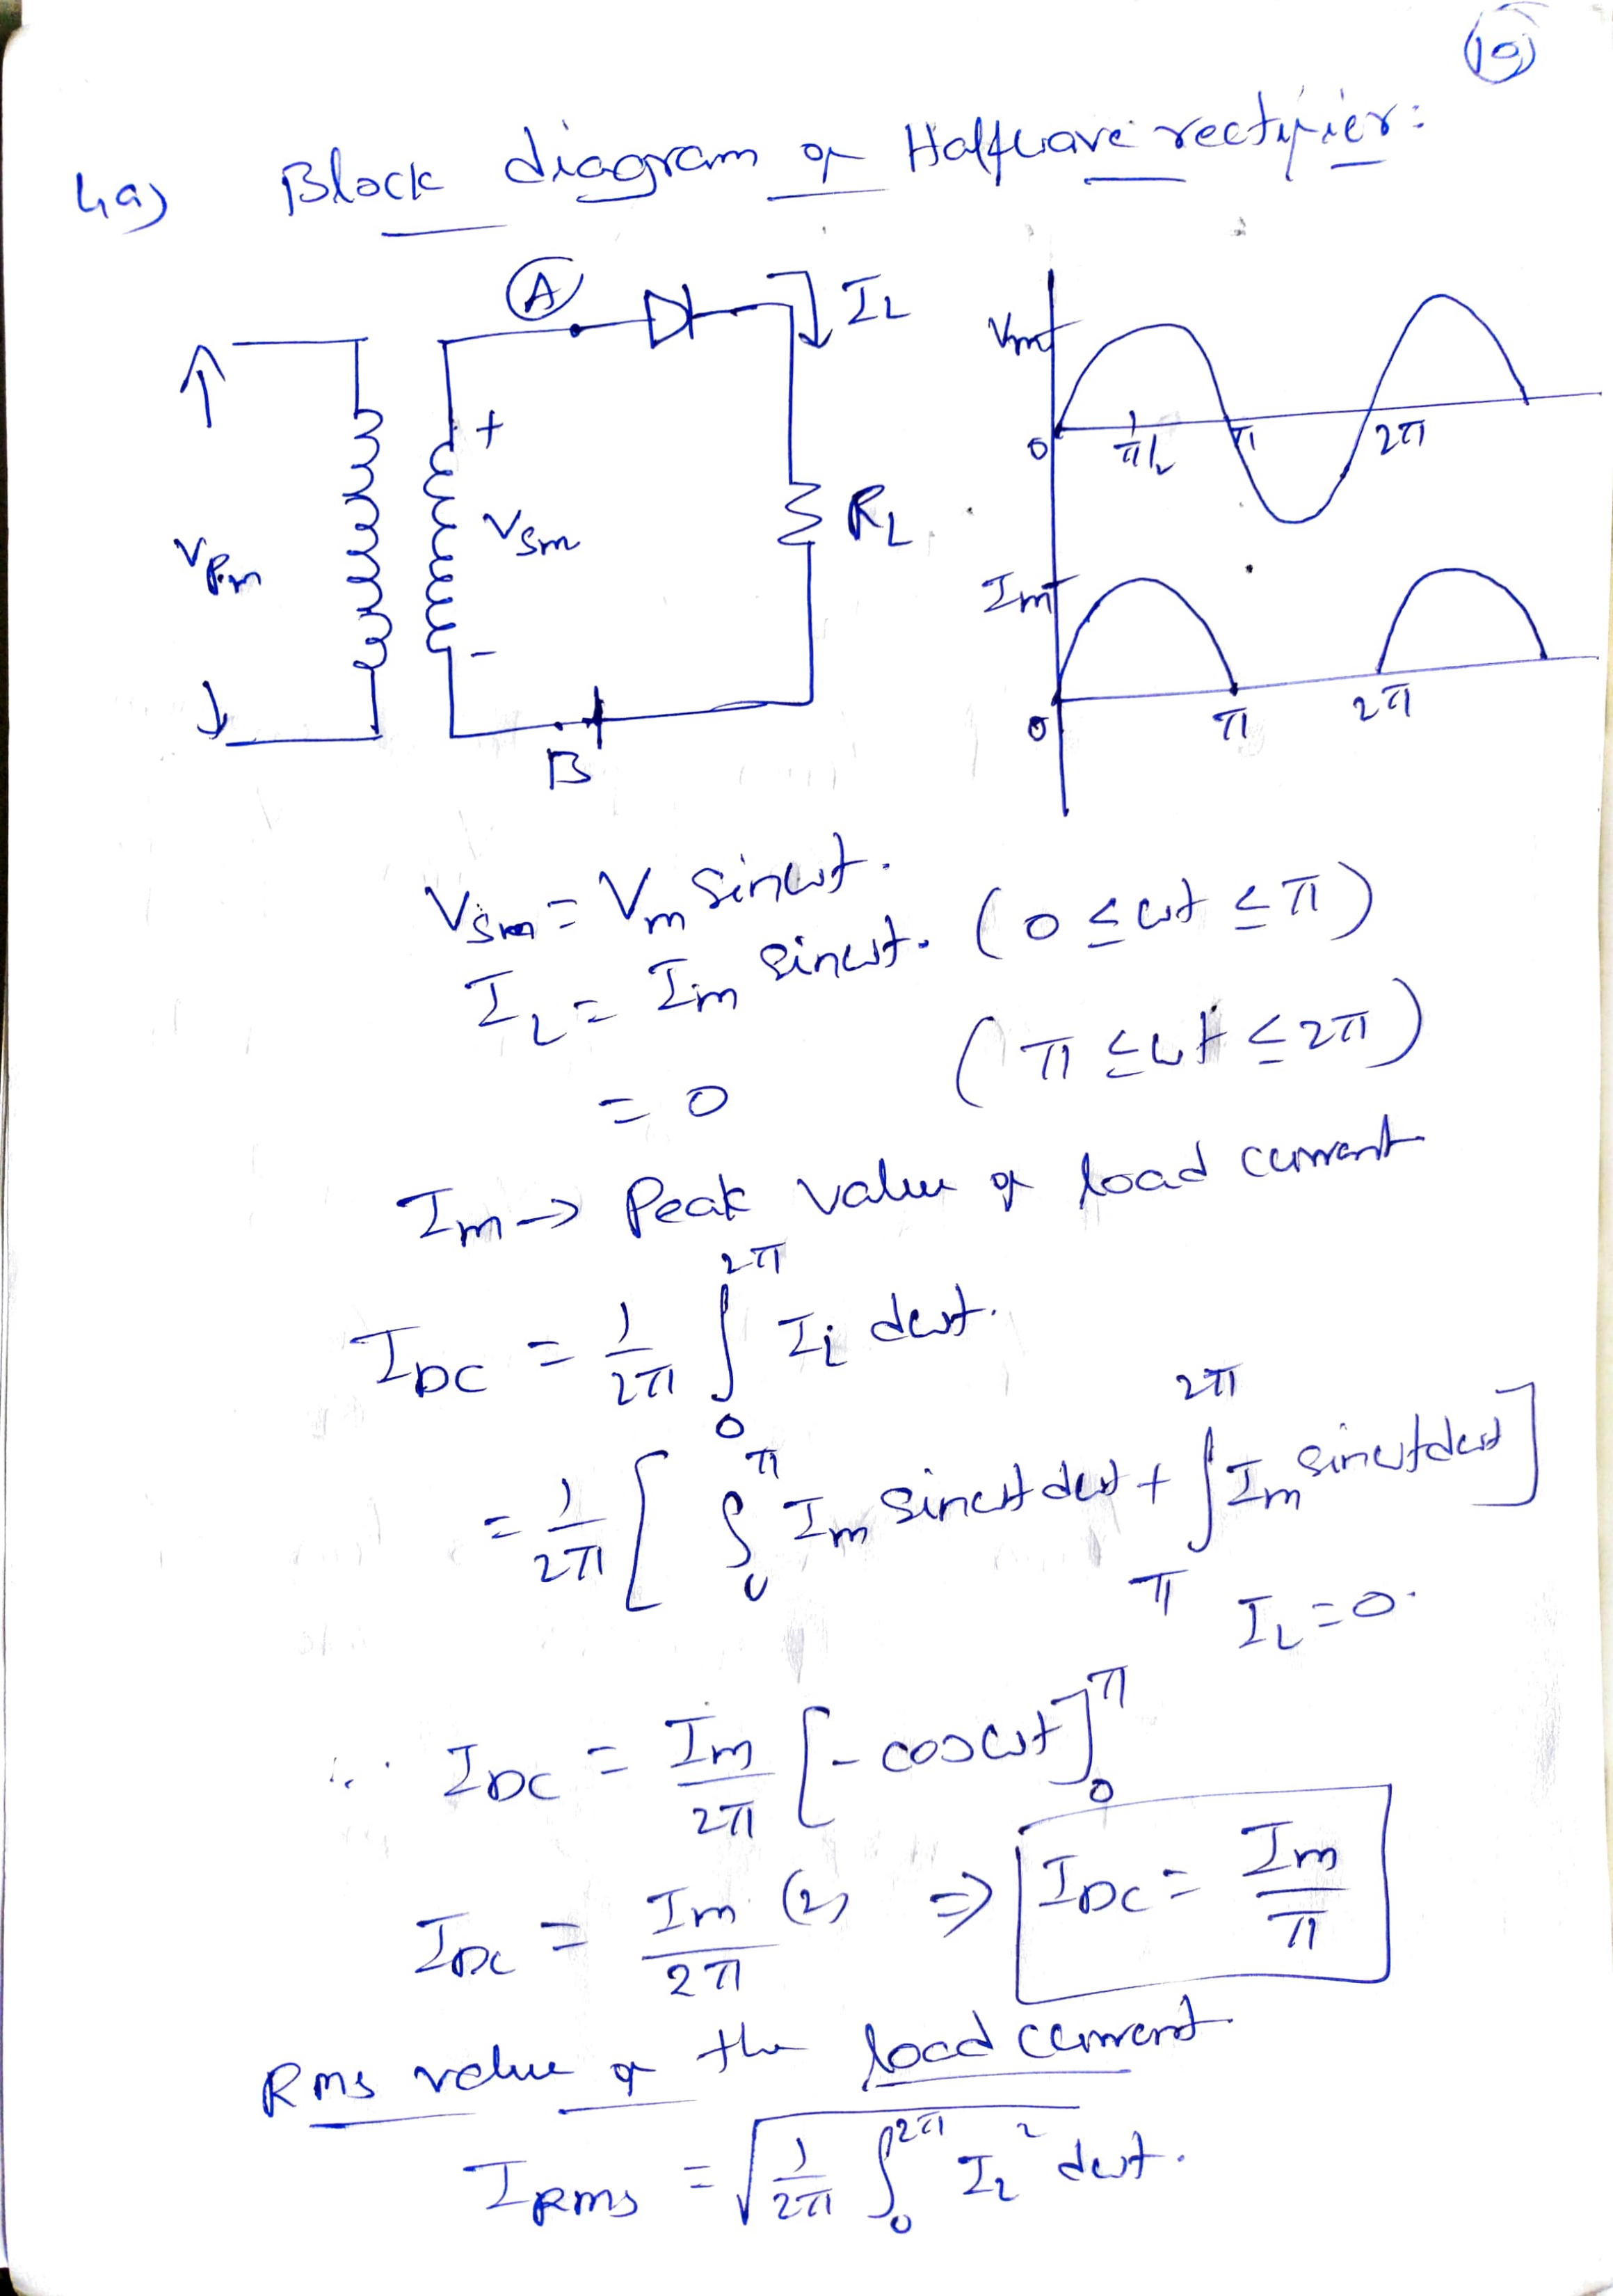 (10)
4a) Block diagram of Halfwave rectifier:
A
I_L
V_m
+
0
π/2
π
2π
V_Sm
R_L
V_Pm
I_m
-
0
π
2π
B
V_Sm = V_m sinωt.
I_L = I_m sinωt. (0 ≤ ωt ≤ π)
= 0 (π ≤ ωt ≤ 2π)
I_m → Peak value of load current
I_DC = 1/2π ∫_0^2π I_i dωt.
= 1/2π [ ∫_0^π I_m sinωt dωt + ∫_π^2π I_m sinωt dωt ]
I_L = 0.
∴ I_DC = I_m/2π [-cosωt]_0^π
I_DC = I_m/2π (2) ⇒ I_DC = I_m/π
Rms value of the load current
I_Rms = √(1/2π ∫_0^2π I_L^2 dωt.